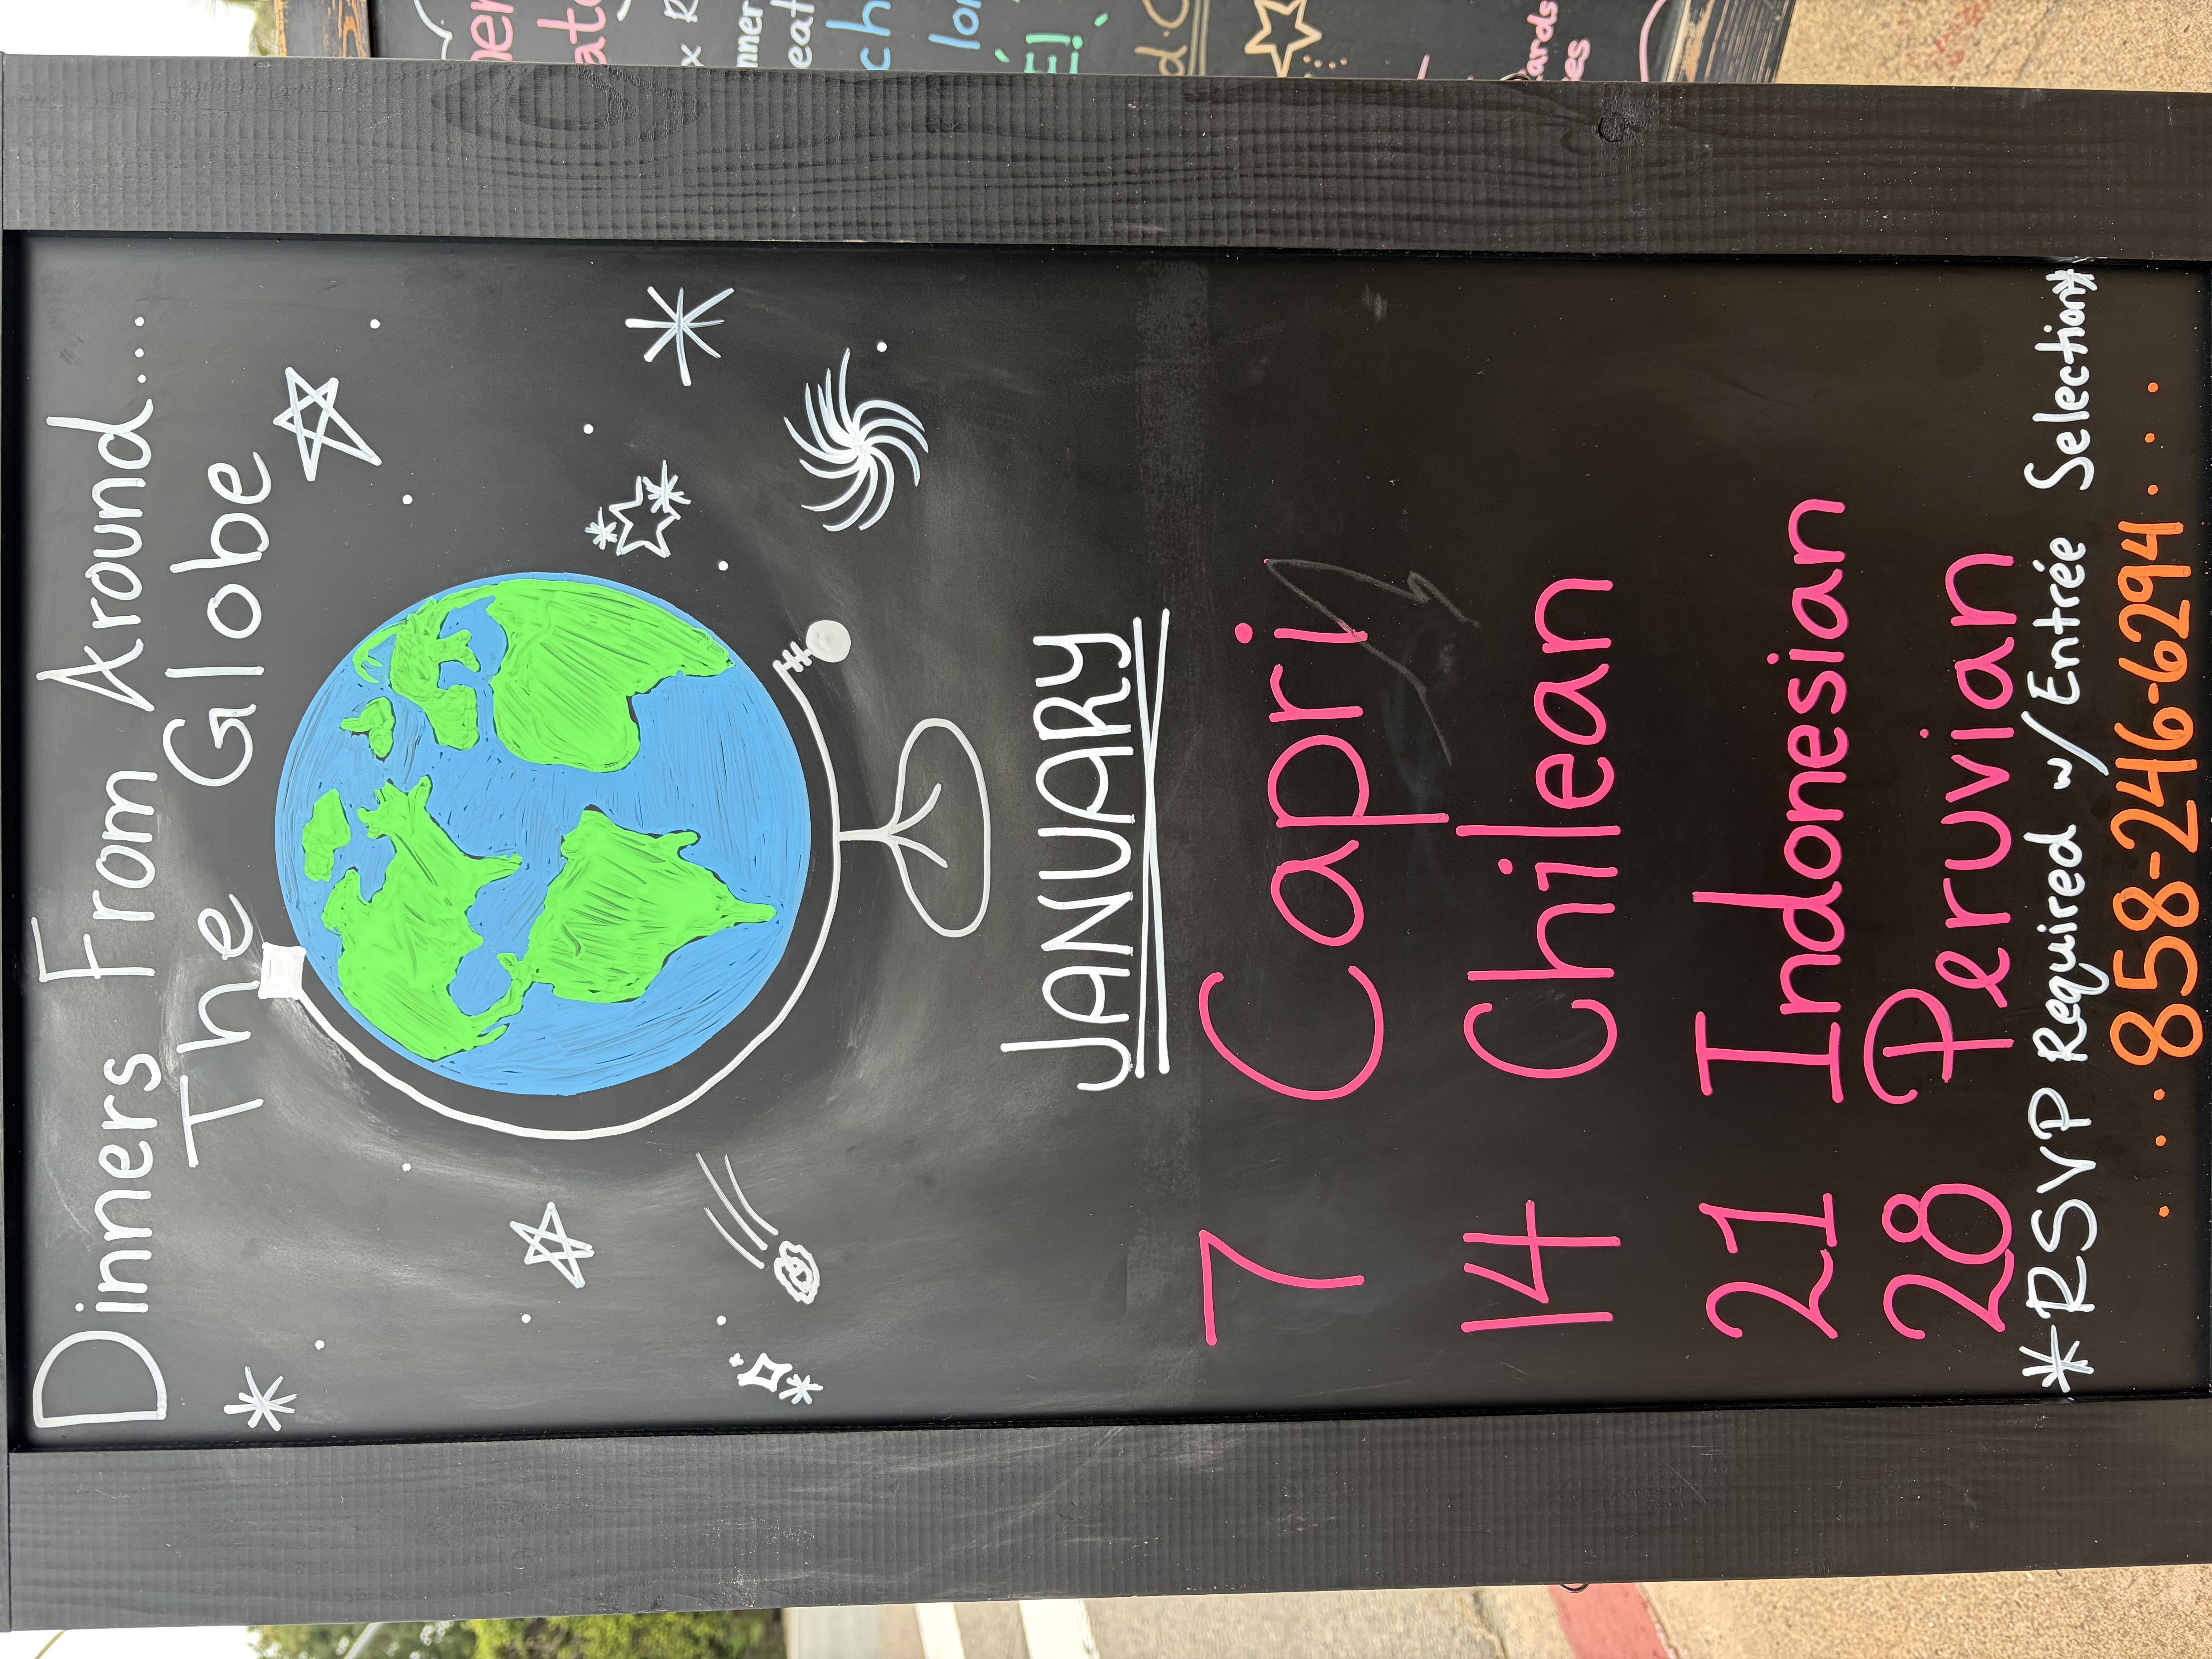 Dinners From Around...
The Globe
JANUARY
7 Capri
14 Chilean
21 Indonesian
28 Peruvian
*RSVP Required w/Entrée Selection*
...858-246-6294...